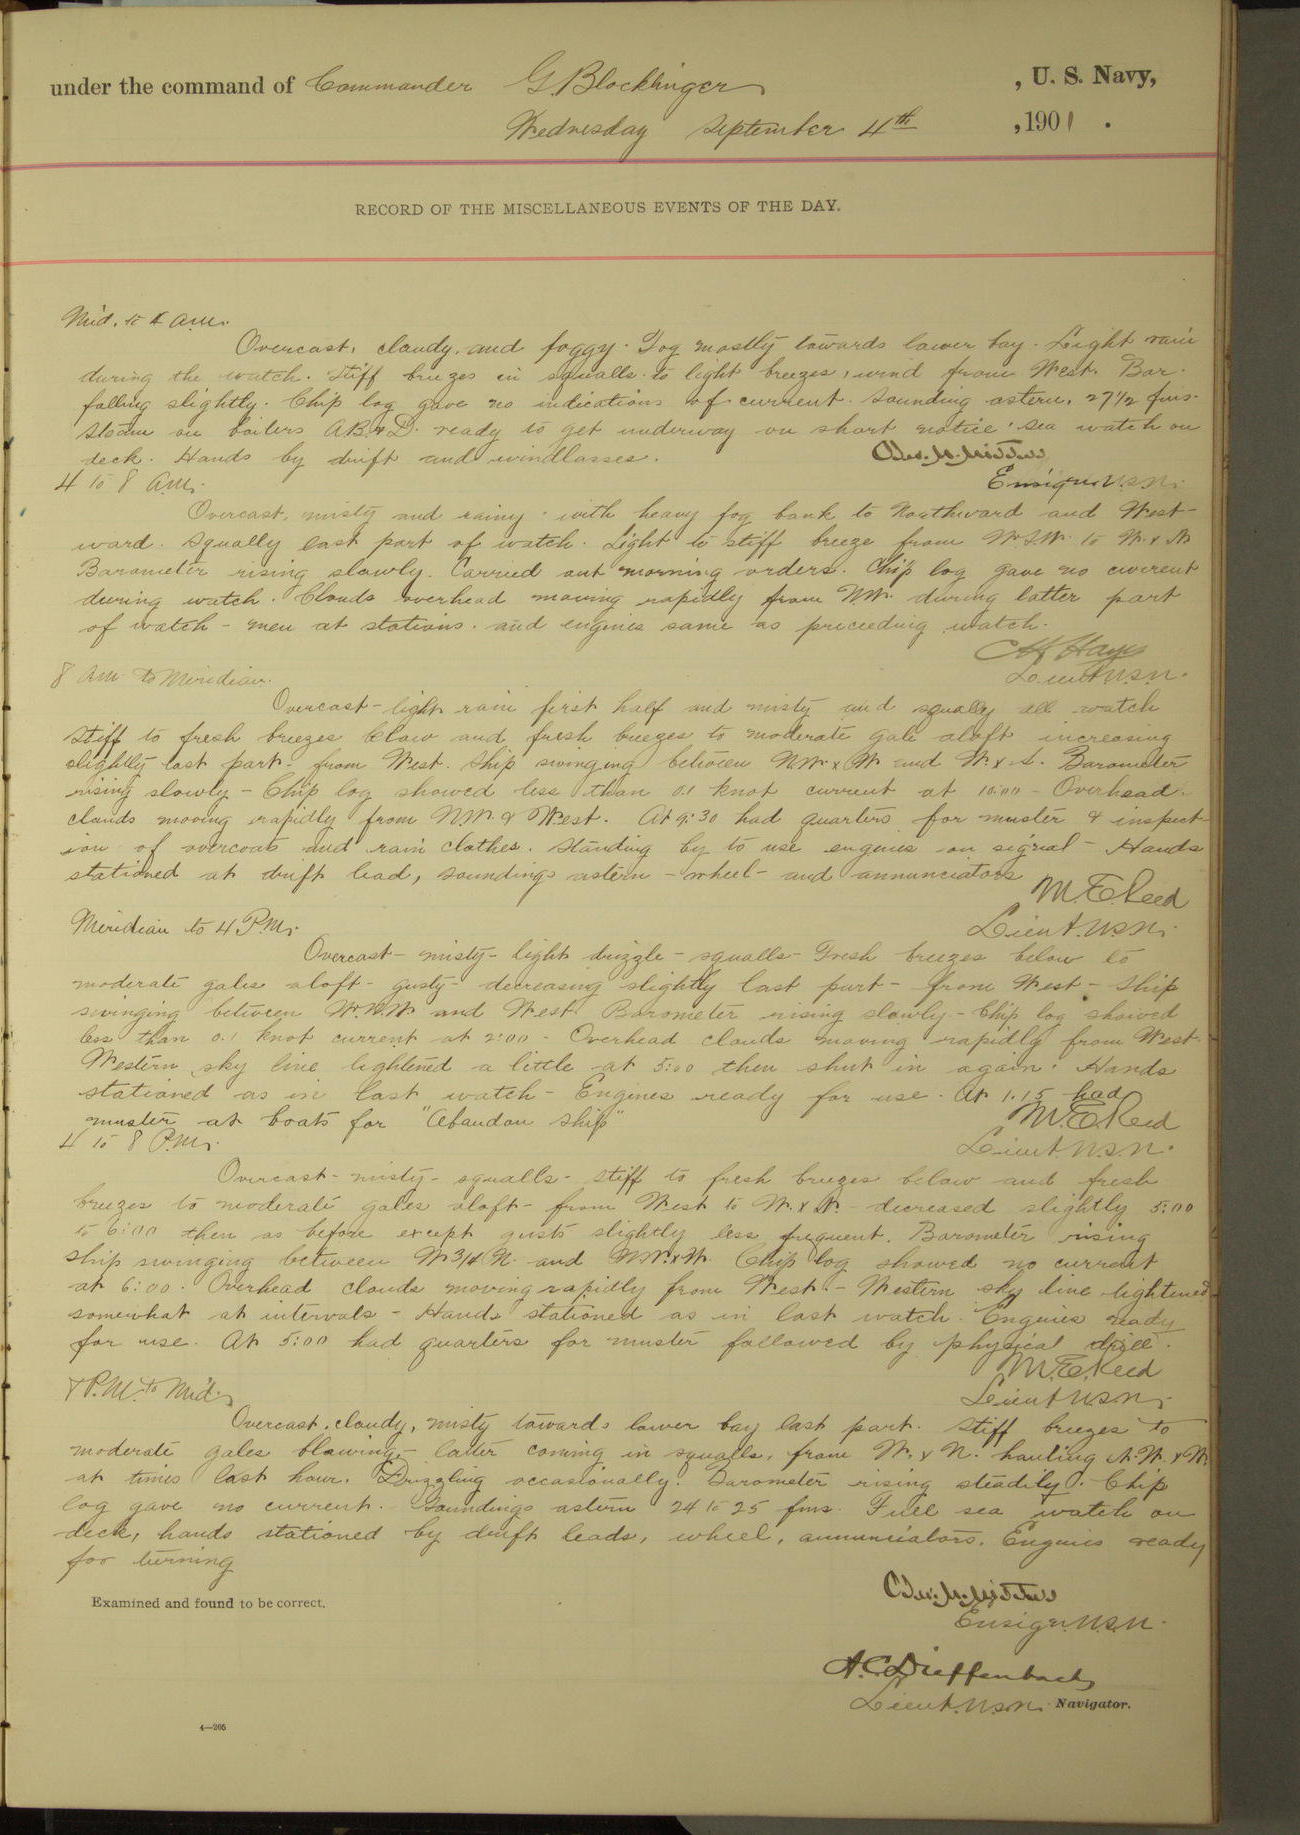 under the command of Commander G. Blocklinger, U. S. Navy,
Wednesday September 4th, 1901.
RECORD OF THE MISCELLANEOUS EVENTS OF THE DAY.
Mid. to 4 a.m.
Overcast, cloudy, and foggy. Fog mostly towards lower bay. Light rain
during the watch. Stiff breezes in squalls to light breezes, wind from West. Bar.
falling slightly. Chip log gave no indications of current. Sounding astern, 27 1/2 fms.
Steam on boilers A B & D. ready to get underway on short notice. sea watch on
deck. Hands by drift and windlasses.
Ensign U.S.N.
4 to 8 a.m.
Overcast, misty and rainy with heavy fog bank to Northward and West-
ward. Squally last part of watch. Light to stiff breeze from W.S.W. to W. x N.
Barometer rising slowly. Carried out morning orders. Chip log gave no current
during watch. Clouds overhead moving rapidly from NW. during latter part
of watch - men at stations. and engines same as preceeding watch.
Lieut U.S.N.
8 am to Meridian.
Overcast - light rain first half and misty and squally all watch
Stiff to fresh breezes blow and fresh breezes to moderate gale aloft increasing
slightly last part - from West. Ship swinging between N.W. x W. and W. x S. Barometer
rising slowly - Chip log showed less than 0.1 knot current at 10:00 - Overhead
clouds moving rapidly from N.W. & West. At 9:30 had quarters for muster & inspect-
ion of overcoats and rain clothes. Standing by to use engines on signal - Hands
stationed at drift lead, soundings astern - wheel - and annunciators
M. E. Reed
Lieut. U.S.N.
Meridian to 4 P.M.
Overcast - misty - light drizzle - squalls - Fresh breezes below to
moderate gales aloft - gusty - decreasing slightly last part - from West - Ship
swinging between W.N.W. and West. Barometer rising slowly - Chip log showed
less than 0.1 knot current at 2:00 - Overhead clouds moving rapidly from West.
Western sky line lightened a little at 5:00 then shut in again. Hands
stationed as in last watch - Engines ready for use. At 1.15 had
muster at boats for "Abandon Ship"
M. E. Reed
Lieut U.S.N.
4 to 8 P.M.
Overcast - misty - squalls - stiff to fresh breezes below and fresh
breezes to moderate gales aloft - from West to W. x N. - decreased slightly 5:00
to 6:00 then as before except gusts slightly less frequent. Barometer rising
Ship swinging between W 3/4 N. and N.W. x W. Chip log showed no current
at 6:00. Overhead clouds moving rapidly from West - Western sky line lightened
somewhat at intervals - Hands stationed as in last watch. Engines ready
for use. At 5:00 had quarters for muster followed by physical drill.
M. E. Reed
Lieut U.S.N.
8 P.M. to Mid.
Overcast, cloudy, misty towards lower bay last part. Stiff breezes to
moderate gales blowing - latter coming in squalls, from W. x N. hauling N.W. x W.
at times last hour. Drizzling occasionally. Barometer rising steadily. Chip
log gave no current. Soundings astern 24 to 25 fms. Full sea watch on
deck, hands stationed by drift leads, wheel, annunciators. Engines ready
for turning
Ensign U.S.N.
Examined and found to be correct.
A. C. Dieffenbach,
Lieut. U.S.N. Navigator.
4—205